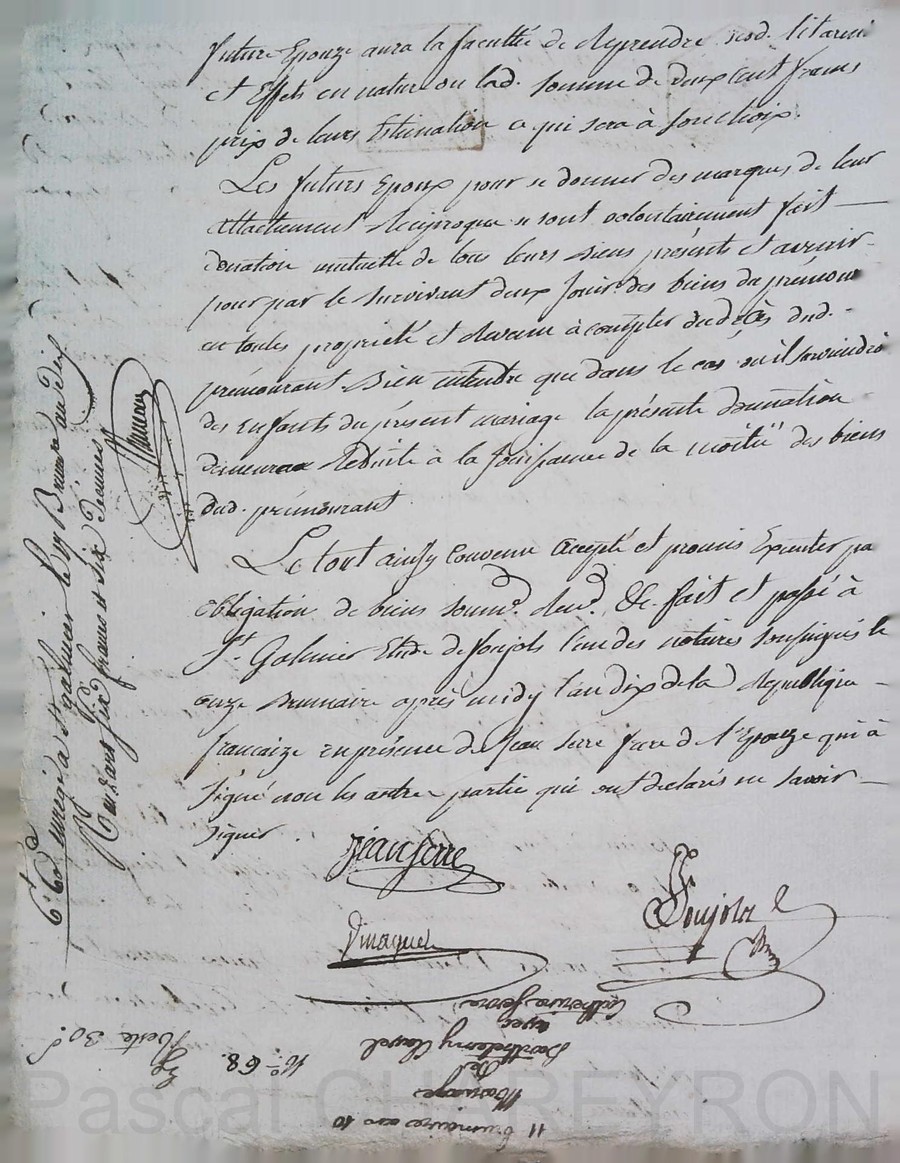 future Epouze aura la faculté de Reprendre sesd. lit armi
et Effets en nature ou lad. Somme de deux Cent francs
prix de leurs Estimation a qui sera à son choix.
Les futurs Epoux pour se donner des marques de leur
attachement Réciproque se sont volontairement fait
donation mutuelle de tous leurs biens présents et avenir
pour par le Survivant deux Jouir des biens du prémour
en toutes propriété et devenu à compter du décès dud.
prémourant Bien entendu que dans le cas où il surviendro
des enfants du présent mariage la présente donnation
demeurera Réduite à la Jouissance de la moitié des biens
dud. prémourant.
Le tout ainsy Convenu accepté et promis Executer pa
obligation de biens soumn. Renon. &c. fait et passé à
St. Galmier Etude de Soujols l'un des notaires Soussignés le
onze Brumaire après midy l'an dix de la Republique
francaize en présence de Jean Serre frere de l'Epouze qui à
Signé non les autre partie qui ont declarés ne Savoir
Signer.
Jean Serre
Soujols
enrégé à St galmier le 19 Brumre an dix
francs et six Décimes
11 brumaire an 10
Mariage
De
Barthelemy Clavel
avec
Catherine Serre
No. 68.
Reste 30s.
Pascal CHAREYRON